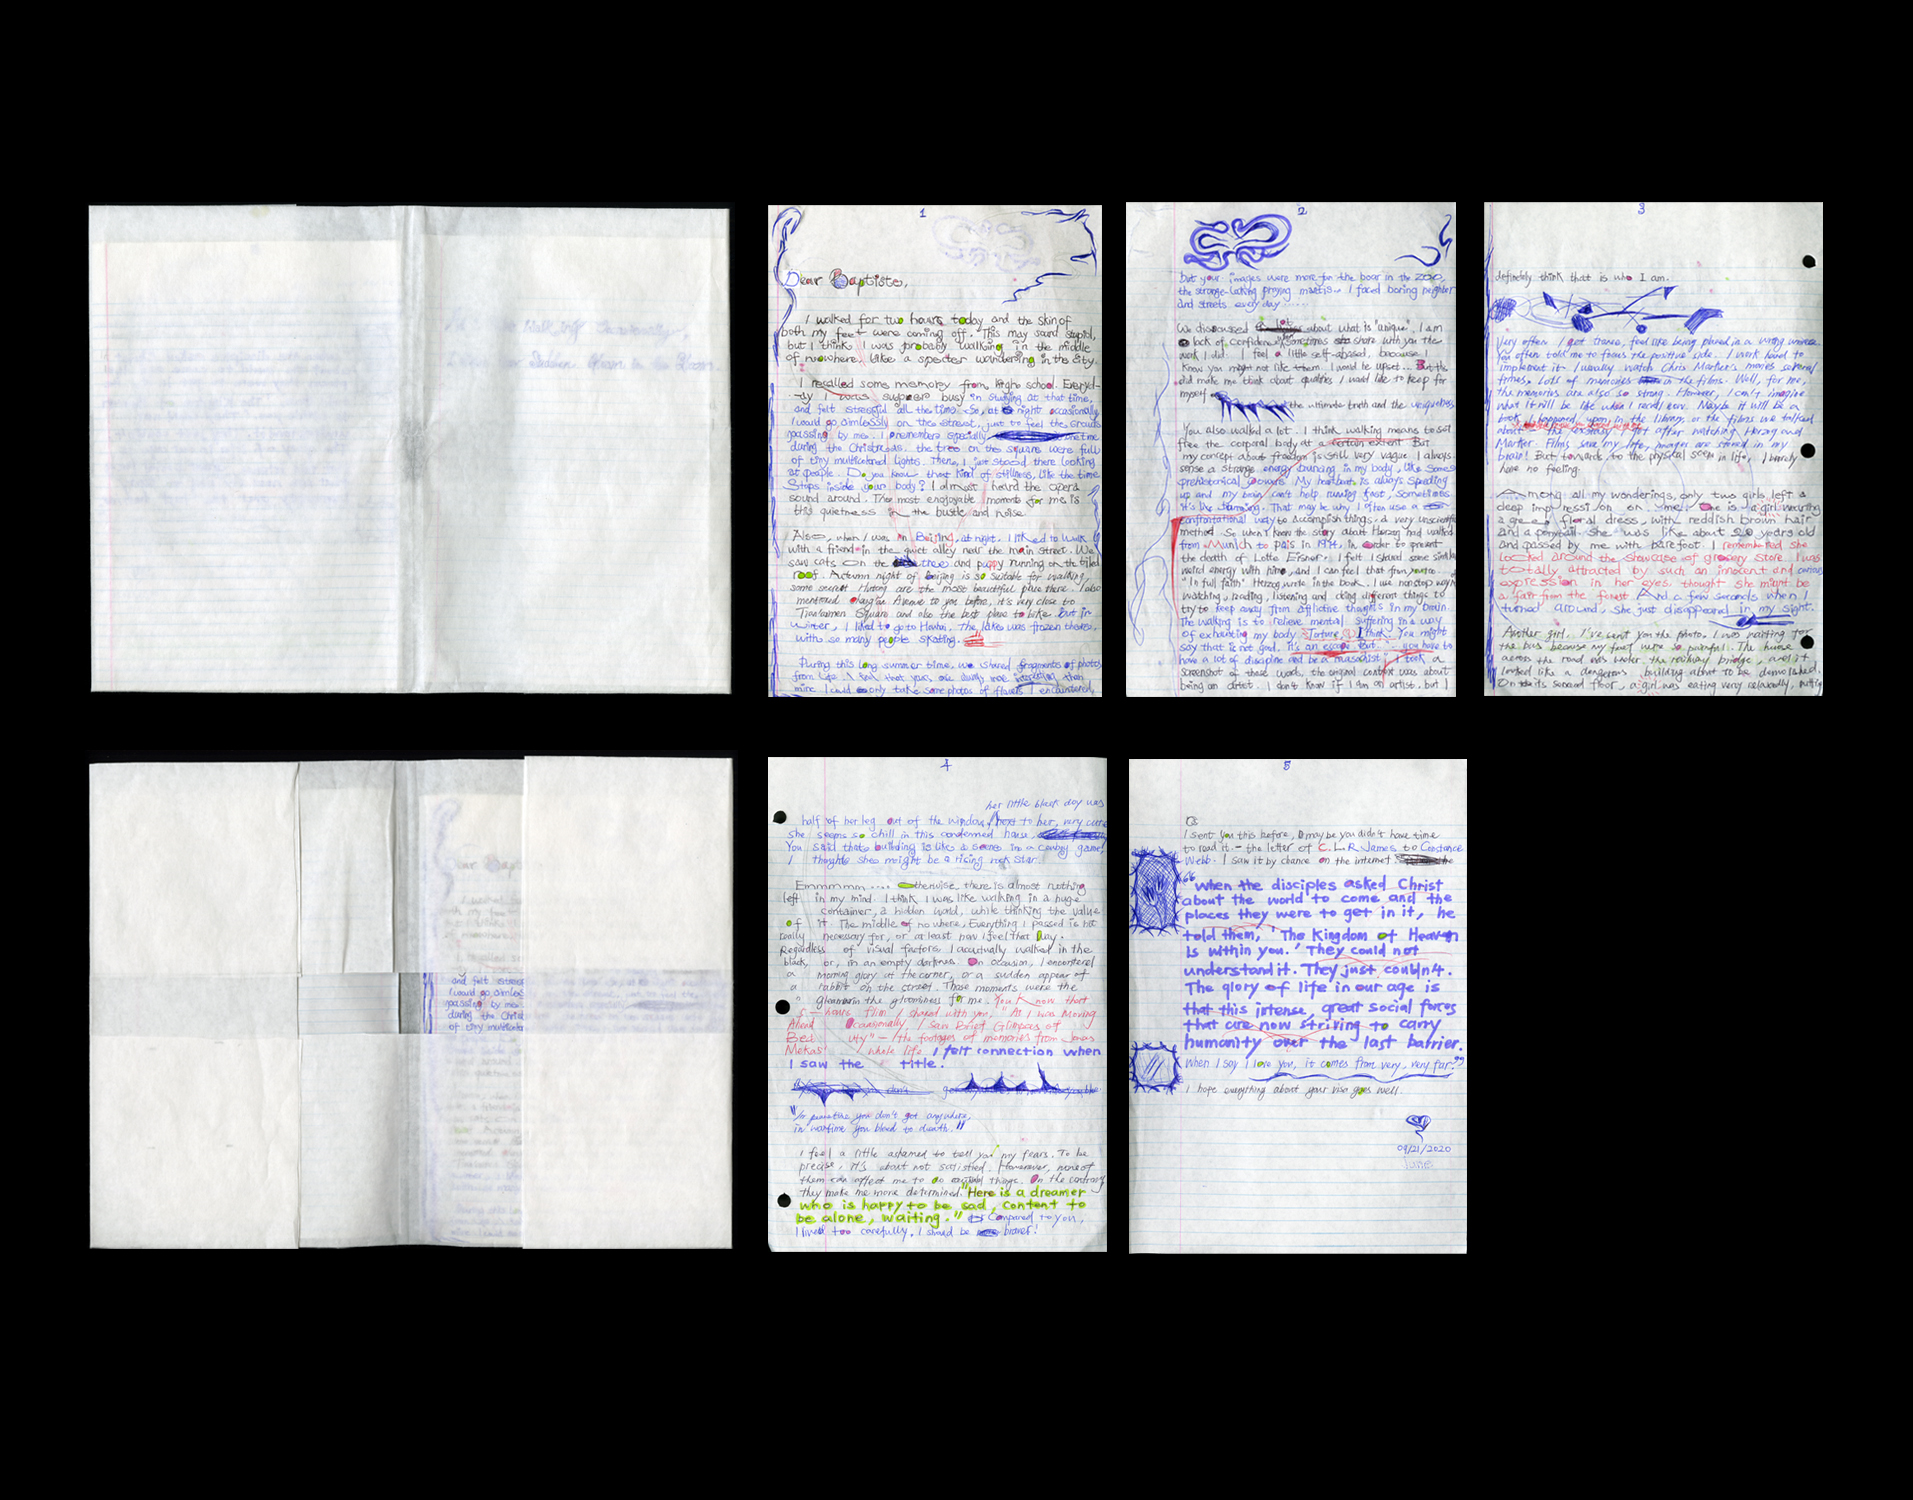 1
Dear Baptiste,
I walked for two hours today and the skin of
both my feet were coming off. This may sound stupid,
but I think I was probably walking in the middle
of nowhere like a specter wandering in the city.
I recalled some memory from high school. Everyd-
ay I was supper busy in studying at that time,
and felt stressful all the time. So, at night occasionally
I would go aimlessly on the street, just to feel the crowds
passing by me. I remember especially one time
during the Christmas. the tree on the square were full
of tiny multicolored lights. There, I just stood there looking
at people. Do you know that kind of stillness, like the time
Stops inside your body? I almost heard the opera
sound around. The most enjoyable moments for me is
this quietness in the bustle and noise
Also, when I was in Beijing, at night. I liked to walk
with a friend in the quiet alley near the main street. We
saw cats on the trees and puppy running on the tiled
roof. Autumn night of Beijing is so suitable for walking,
some secret Hutong are the most beautiful place there. I also
mentioned Chang'an Avenue to you before, it's very close to
Tiananmen Square and also the best place to bike. But in
winter, I liked to go to Houhai. The lakes was frozen there,
with so many people skating.
During this long summer time, we shared fragments of photos
from life. I find that yours are always more interesting than
mine. I could only take some photos of flowers I encountered,
2
but your images were more fun the boar in the zoo,
the strange-looking praying mantis... I faced boring neighbor
and streets every day ......
We discussed a lot about what is "unique". I am
lack of confidence sometimes to share with you the
work I did. I feel a little self-abased, because I
know you might not like them. I would be upset... But this
did make me think about qualities I would like to keep for
myself the ultimate truth and the uniqueness
You also walked a lot. I think walking means to set
free the corporal body at a certain extent. But
my concept about freedom is still very vague. I always
sense a strange energy bouncing in my body, like some
prehistorical powers. My heartbeat is always speeding
up and my brain can't help running fast, sometimes
it's like burning. That may be why I often use a
confrontational way to accomplish things. a very unscientific
method. So when I knew the story about Herzog had walked
from Munich to Paris in 1974, in order to prevent
the death of Lotte Eisner, I felt I shared some similar
weird energy with him, and I can feel that from you too.
"In full faith" Herzog wrote in the book. I use nonstop ways
watching, reading, listening and doing different things to
try to keep away from afflictive thoughts in my brain.
The walking is to relieve mental suffering in a way
of exhausting my body. Torture, I think. You might
say that is not good. it's an escape. But ... you have to
have a lot of discipline and be a masochist; I took a
screenshot of these words, the original context was about
being an artist. I don't know if I am an artist, but I
3
definitely think that is who I am.
Very often, I got trance, feel like being placed in a wrong universe.
You often told me to focus the positive side. I work hard to
implement it. I usually watch Chris Marker's movies several
times. Lots of memories in the films. Well, for me,
the memories are also so strong. However, I can't imagine
what it will be like when I recall now. Maybe it will be a
book I happened upon in the library, or the films we talked
about the ecstasy I got after watching Herzog and
Marker. Films save my life, images are stored in my
brain! But towards to the physical seem in life, I barely
have no feeling.
Among all my wonderings, only two girls left a
deep impression on me. One is a girl wearing
a green floral dress, with reddish brown hair
and a ponytail. She was like about 20 years old
and passed by me with barefoot. I remembered she
located around the showcase of grocery store. I was
totally attracted by such an innocent and curious
expression in her eyes. thought she might be
a fair from the forest. And a few seconds when I
turned around, she just disappeared in my sight.
Another girl. I've sent you the photo. I was waiting for
the bus because my feet were so painful. The house
across the road was under the railway bridge, and it
looked like a dangerous building about to be demolished.
On its second floor, a girl was eating very relaxedly, putting
4
her little black dog was
half of her leg out of the window, next to her, very cute
she seems so chill in this condemned house,
You said that building is like a scene in a cowboy game!
I thought she might be a rising rock star.
Emmmmm .... Otherwise, there is almost nothing
left in my mind. I think I was like walking in a huge
container, a hidden world, while thinking the value
of it. The middle of no where, Everything I passed is not
really necessary for, or at least now I feel that way.
Regardless of visual factors, I accurtually walked in the
black, or, in an empty darkness. On occasion, I encontered
a morning glory at the corner, or a sudden appear of
a rabbit on the street. Those moments were the
gleam in the gloominess for me. You know that
5-hours film I shared with you, "As I was Moving
Ahead Ocasionally, I Saw Brief Glimpses of
Beauty" — the footages of memories from Jonas
Mekas' whole life. I felt connection when
I saw the title.
"In peacetime you don't get anywhere,
in wartime you bleed to death."
I feel a little ashamed to tell you my fears. To be
precise, it's about not satisfied. However, none of
them can affect me to do things. On the contrary
they make me more determined. "Here is a dreamer
who is happy to be sad, content to
be alone, waiting." Compared to you,
I lived too carefully, I should be braver!
5
I sent you this before, maybe you didn't have time
to read it. — the letter of C.L.R James to Constance
Webb. I saw it by chance on the internet
"When the disciples asked Christ
about the world to come and the
places they were to get in it, he
told them, 'The Kingdom of Heaven
is within you.' They could not
understand it. They just couldn't.
The glory of life in our age is
that this intense, great social forces
that are now striving to carry
humanity over the last barrier.
When I say I love you, it comes from very, very far."
I hope everything about your visa goes well.
09/21/2020
June
and felt stress
I would go aimless
passing by me.
during the Christ
of tiny multicolo